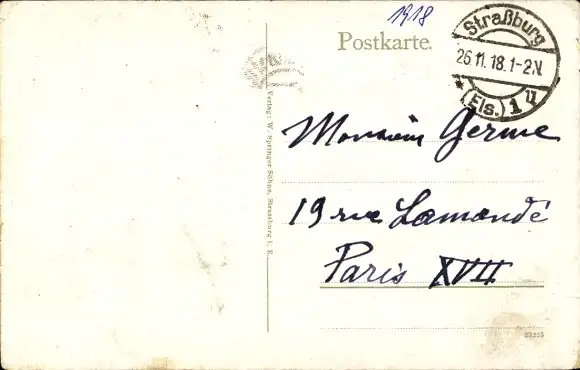 1918
Postkarte.
Straßburg
26.11.18.1-2N.
* (Els.) 1 u
Verlag: W. Springer Söhne, Strassburg i. E.
Monsieur Germe
19 rue Lamandé
Paris XVII